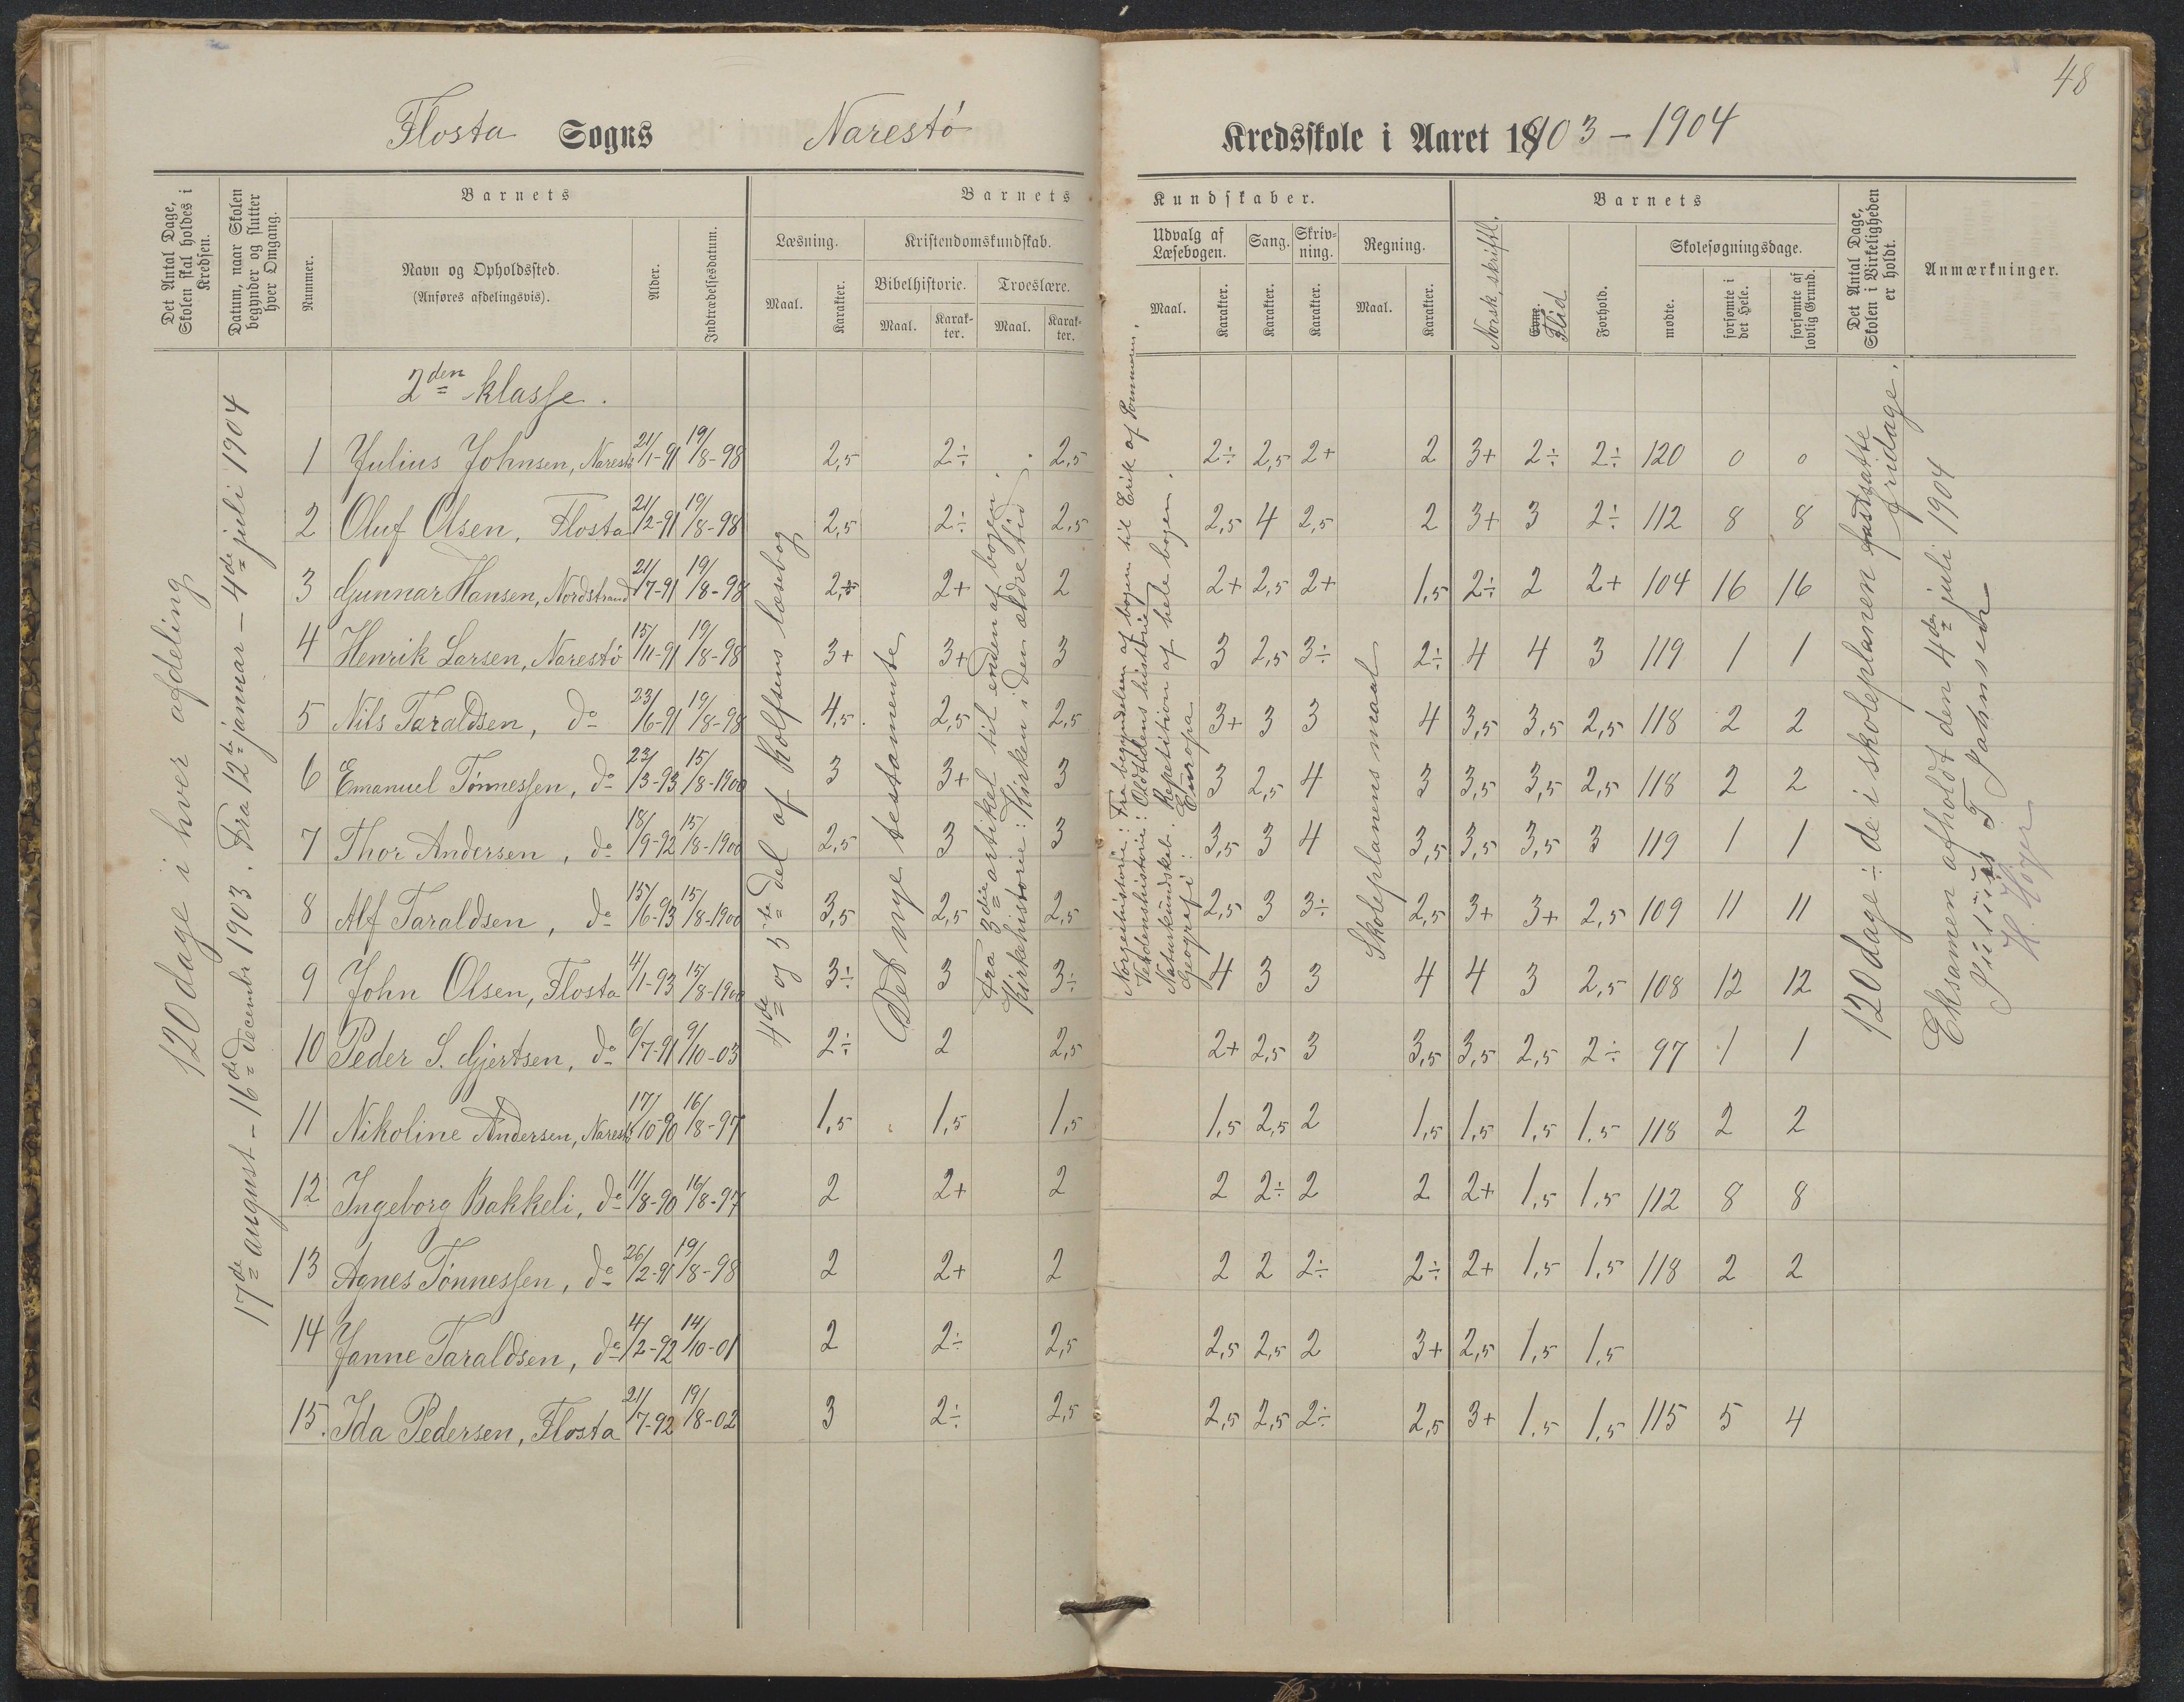 48
Flosta Sogns Narestö Kredsskole i Aaret 1903 - 1904
Det Antal Dage, Skolen skal holdes i Kredsen.
Datum, naar Skolen begynder og slutter hver Omgang.
Nummer.
Barnets
Navn og Opholdssted.
(Anføres afdelingsvis).
Alder.
Indtrædelsesdatum.
Barnets Kundskaber.
Læsning.
Maal.
Karakter.
Kristendomskundskab.
Bibelhistorie.
Maal.
Karakter.
Troeslære.
Maal.
Karakter.
Udvalg af Læsebogen.
Maal.
Karakter.
Sang.
Karakter.
Skrivning.
Karakter.
Regning.
Maal.
Karakter.
Norsk, skriftl.
Barnets
Evne.
Flid
Forhold.
Skolesøgningsdage.
mødte.
forsømte i det Hele.
forsømte af lovlig Grund.
Det Antal Dage, Skolen i Virkeligheden er holdt.
Anmærkninger.
120 dage i hver afdeling
17de august - 16de decembr 1903. Fra 12te januar - 4de juli 1904
2den klasse.
4de og 5te del af Rolfsens læsebog
Det nye testamente
Fra 3die artikel til enden af bogen.
Kirkehistorie: Kirken i den ældre tid
Norgeshistorie: Fra begyndelsen af bogen til Erik af Pommern.
Verdenshistorie: Oldtidens historie
Naturkundskab: Repetition af hele bogen.
Geografi: Europa
Skoleplanens maal
120 dage ÷ de i skoleplanen fastsatte fridage.
Eksamen afholdt den 4de juli 1904
Julius T Jahnsen
H. Höyer
1 Julius Johnsen, Narestö 21/1-91 19/8-98 2,5 2÷ 2,5 2÷ 2,5 2+ 2 3+ 2÷ 2÷ 120 0 0
2 Oluf Olsen, Flosta 21/2-91 19/8-98 2,5 2÷ 2,5 2,5 4 2,5 2 3+ 3 2÷ 112 8 8
3 Gunnar Hansen, Nordstrand 21/7-91 19/8-98 2,5 2+ 2 2+ 2,5 2+ 1,5 2÷ 2 2+ 104 16 16
4 Henrik Larsen, Narestö 15/11-91 19/8-98 3+ 3+ 3 3 2,5 3÷ 2÷ 4 4 3 119 1 1
5 Nils Taraldsen, do 23/6-91 19/8-98 4,5 2,5 2,5 3+ 3 3 4 3,5 3,5 2,5 118 2 2
6 Emanuel Tönnessen, do 23/3-93 15/8-1900 3 3+ 3 3 2,5 4 3 3,5 3,5 2,5 118 2 2
7 Thor Andersen, do 18/9-92 15/8-1900 2,5 3 3 3,5 3 4 3,5 3,5 3,5 3 119 1 1
8 Alf Taraldsen, do 15/6-93 15/8-1900 3,5 2,5 2,5 2,5 3 3÷ 2,5 3+ 3+ 2,5 109 11 11
9 John Olsen, Flosta 4/1-93 15/8-1900 3÷ 3 3÷ 4 3 3 4 4 3 2,5 108 12 12
10 Peder S. Gjertsen, do 6/7-91 9/10-03 2÷ 2 2,5 2+ 2,5 3 3,5 3,5 2,5 2÷ 97 1 1
11 Nikoline Andersen, Narestö 17/10-90 16/8-97 1,5 1,5 1,5 1,5 2,5 2 1,5 1,5 1,5 1,5 118 2 2
12 Ingeborg Bakkeli, do 11/8-90 16/8-97 2 2+ 2 2 2÷ 2 2 2+ 1,5 1,5 112 8 8
13 Agnes Tönnessen, do 26/2-91 19/8-98 2 2+ 2 2 2 2÷ 2÷ 2+ 1,5 1,5 118 2 2
14 Janne Taraldsen, do 4/2-92 14/10-01 2 2÷ 2,5 2,5 2,5 2 3+ 2,5 1,5 1,5
15. Ida Pedersen, Flosta 21/7-92 19/8-02 3 2÷ 2,5 2,5 2,5 2÷ 2,5 3+ 1,5 1,5 115 5 4